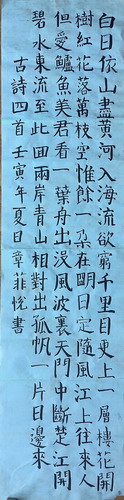 白日依山盡黃河入海流欲窮千里目更上一層樓花開
樹紅花落萬枝空惟餘一朶在眀日定隨風江上往來人
但愛鱸魚美君看一葉舟出沒風波裏天門中斷楚江開
碧水東流至此回兩岸青山相對出孤帆一片日邊來
古詩四首壬寅年夏日章菲悅書